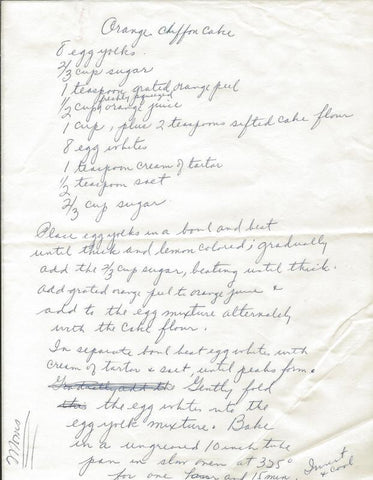 Orange Chiffon Cake
8 egg yolks.
2/3 cup sugar
1 teaspoon grated orange peel
freshly squeezed
1/2 cup orange juice
1 cup, plus 2 teaspoons sifted cake flour
8 egg whites
1 teaspoon cream of tartar
1/2 teaspoon salt
2/3 cup sugar
Place egg yolks in a bowl and beat
until thick and lemon colored; gradually
add the 2/3 cup sugar, beating until thick.
Add grated orange peel to orange juice &
add to the egg mixture alternately
with the cake flour.
In separate bowl beat egg white with
cream of tartar & salt, until peaks form.
Gradually add the Gently fold
this the egg whites into the
egg yolk mixture. Bake
in a ungreased 10 inch tube
pan in slow oven at 325°
for one hour and 15 min.
Invert
& cool
Moms